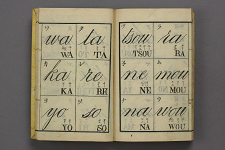 wa ta
WA TA
ka re
KA RE
yo so
YO SO
tsou ra
TSOU RA
ne mou
NE MOU
na wou
NA WOU